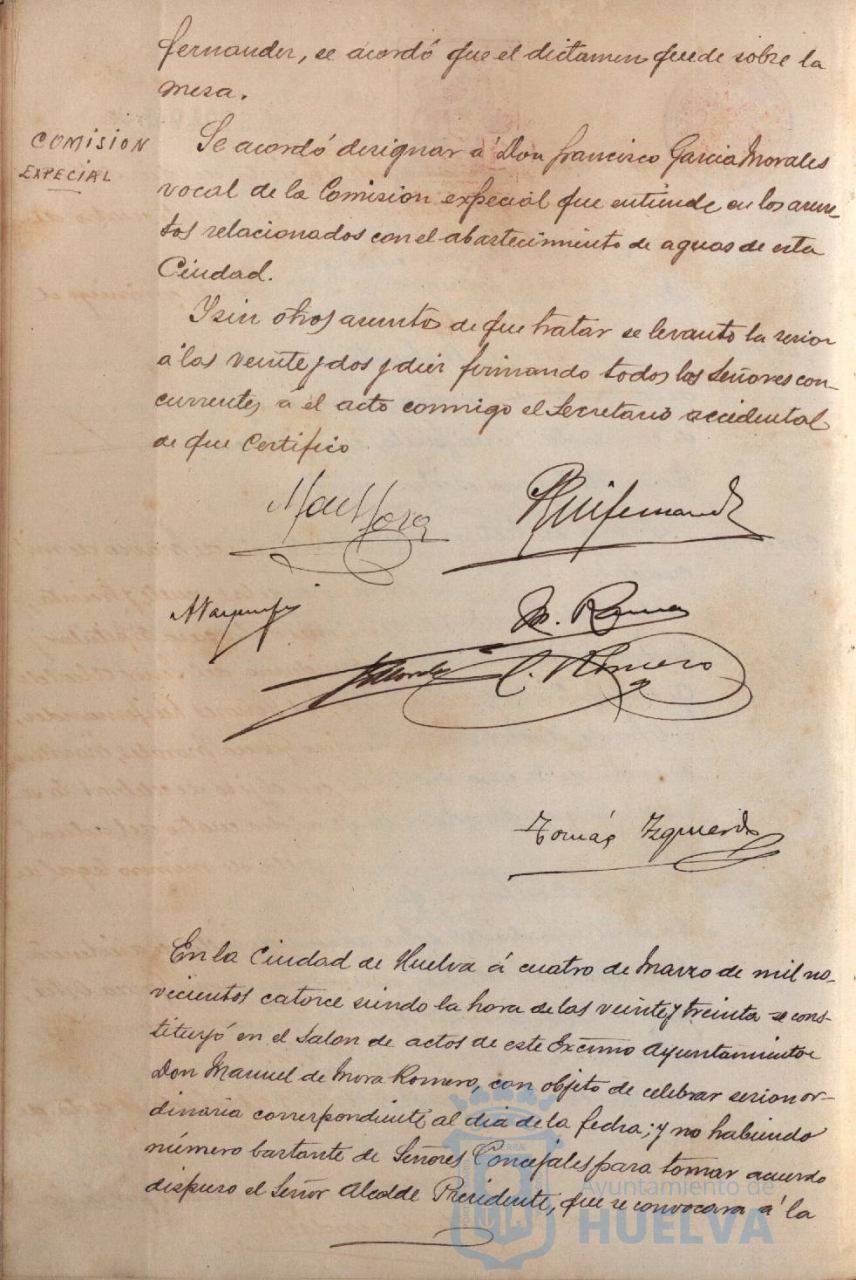 fernandez, se acordó que el dictamen quede sobre la
mesa.
COMISION
EXPECIAL
Se acordó designar á Don francisco Garcia Morales
vocal de la Comision expecial que entiende en los asun-
tos relacionados con el abastecimiento de aguas de esta
Ciudad.
Y sin otros asuntos de que tratar se levantó la sesion
á las veinte y dos y diez firmando todos los Señores con-
currentes á el acto conmigo el Secretario accidental
de que Certifico
M de Mora
Ruifernandz
M. Romero
C. Romero
Tomás Izquierdo
En la Ciudad de Huelva á cuatro de Marzo de mil no-
vecientos catorce siendo la hora de las veinte y treinta se cons-
tituyó en el Salon de actos de este Excmo Ayuntamiento
Don Manuel de Mora Romero, con objeto de celebrar sesion or-
dinaria correspondiente al dia de la fecha; y no habiendo
número bastante de Señores Concejales para tomar acuerdo
dispuso el Señor Alcalde Presidente, que se convocara á la
Ayuntamiento de
HUELVA